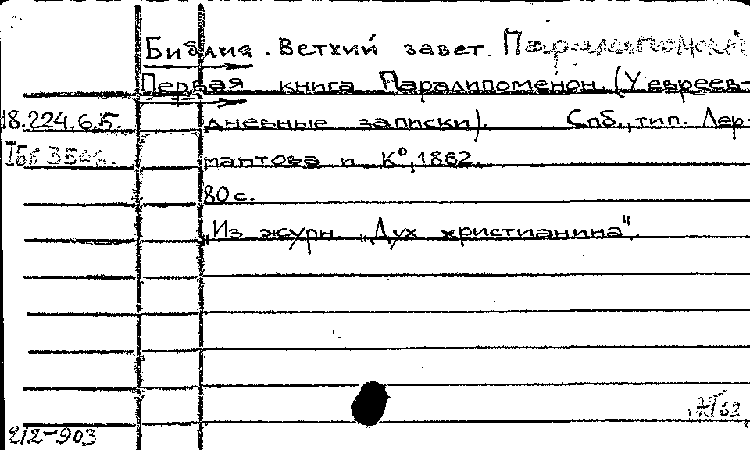 Библия. Ветхий завет. Паралипоменон
Первая книга Паралипоменон. (У евреев-
18.224.6.5. дневные записки). Спб., тип. Лер-
мантова и К°, 1862.
80 с.
„Из журн. „Дух христианина".
212-903